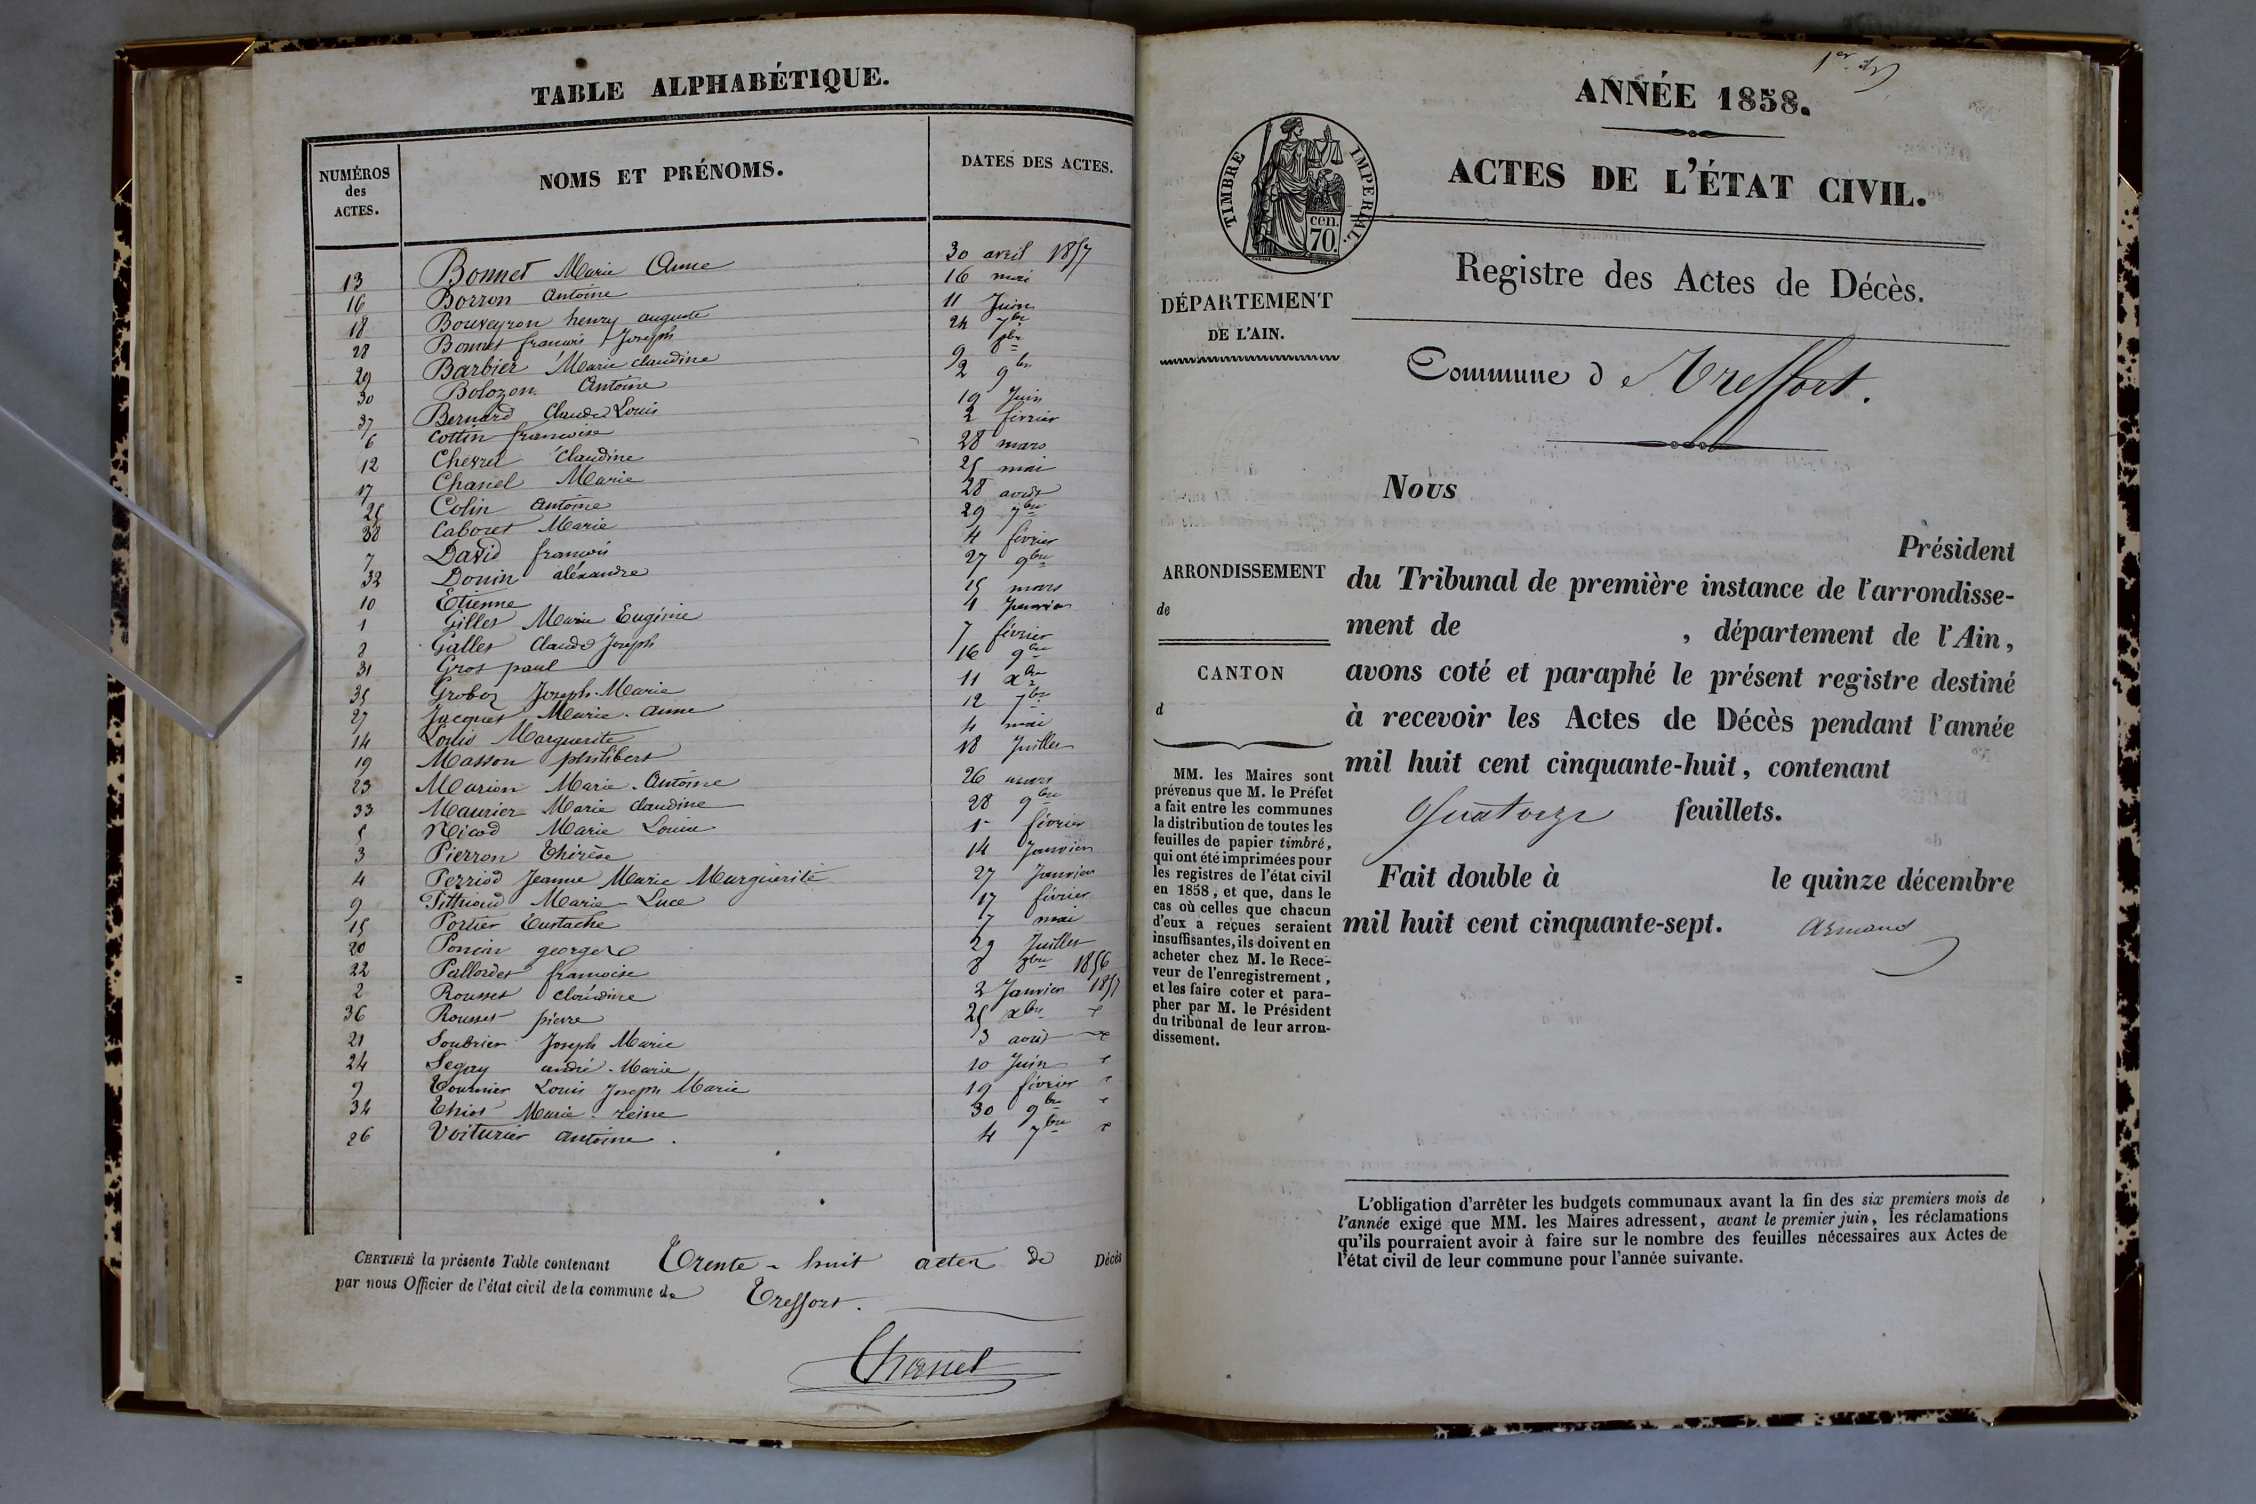 TABLE ALPHABÉTIQUE.
NUMÉROS des ACTES. NOMS ET PRÉNOMS. DATES DES ACTES.
13 Bonnet Marie Anne 30 avril 1857
16 Borron Antoine 16 mai
18 Bouveyron henry auguste 11 Juin
28 Bonnet francois Joseph 24 7bre
29 Barbier Marie claudine 9 8bre
30 Bolozon Antoine 2 9bre
37 Bernard Claude Louis 19 Juin
6 Cottin francoise 2 février
12 Chevrel Claudine 28 mars
17 Chanel Marie 25 mai
25 Colin Antoine 28 août
38 Caboret Marie 29 7bre
7 David francois 4 février
32 Donin aléxandre 27 9bre
10 Etienne 15 mars
1 Gillet Marie Eugénie 1 Janvier
8 Gallet Claude Joseph 7 février
31 Gros paul 16 9bre
35 Groboz Joseph-Marie 11 xbre
27 Jacquet Marie-anne 12 7bre
14 Louis Marguerite 4 mai
19 Masson philibert 18 Juillet
23 Marion Marie-Antoine 26 mars
33 Maurier Marie claudine 28 9bre
5 Nicod Marie Louise 1er février
3 Pierron Thérèse 14 Janvier
4 Perriod Jeanne Marie Marguerite 27 Janvier
9 Marie-Luce 17 février
15 Portier Eustache 7 mai
20 Poncin george 29 Juillet
22 Pallordet francoise 8 8bre 1856
2 Rousset claudine 2 Janvier 1857
36 Rousset pierre 25 xbre
21 Soubrier Joseph Marie 3 août
24 Segny andré-Marie 10 Juin
9 Tournier Louis Joseph Marie 19 février
34 Thiot Marie-reine 30 9bre
26 Voiturier antoine. 4 7bre
CERTIFIÉ la présente Table contenant Trente-huit actes de Décès
par nous Officier de l'état civil de la commune de Treffort.
Chanel
1er
ANNÉE 1858.
ACTES DE L'ÉTAT CIVIL.
TIMBRE IMPERIAL.
cen.
70.
Registre des Actes de Décès.
DÉPARTEMENT
DE L'AIN.
Commune de Treffort.
Nous
Président
ARRONDISSEMENT
de
CANTON
d
du Tribunal de première instance de l'arrondisse-
ment de , département de l'Ain,
avons coté et paraphé le présent registre destiné
à recevoir les Actes de Décès pendant l'année
mil huit cent cinquante-huit, contenant
Quatorze feuillets.
Fait double à le quinze décembre
mil huit cent cinquante-sept. Armand
MM. les Maires sont
prévenus que M. le Préfet
a fait entre les communes
la distribution de toutes les
feuilles de papier timbré,
qui ont été imprimées pour
les registres de l'état civil
en 1858, et que, dans le
cas où celles que chacun
d'eux a reçues seraient
insuffisantes, ils doivent en
acheter chez M. le Rece-
veur de l'enregistrement,
et les faire coter et para-
pher par M. le Président
du tribunal de leur arron-
dissement.
L'obligation d'arrêter les budgets communaux avant la fin des six premiers mois de
l'année exige que MM. les Maires adressent, avant le premier juin, les réclamations
qu'ils pourraient avoir à faire sur le nombre des feuilles nécessaires aux Actes de
l'état civil de leur commune pour l'année suivante.